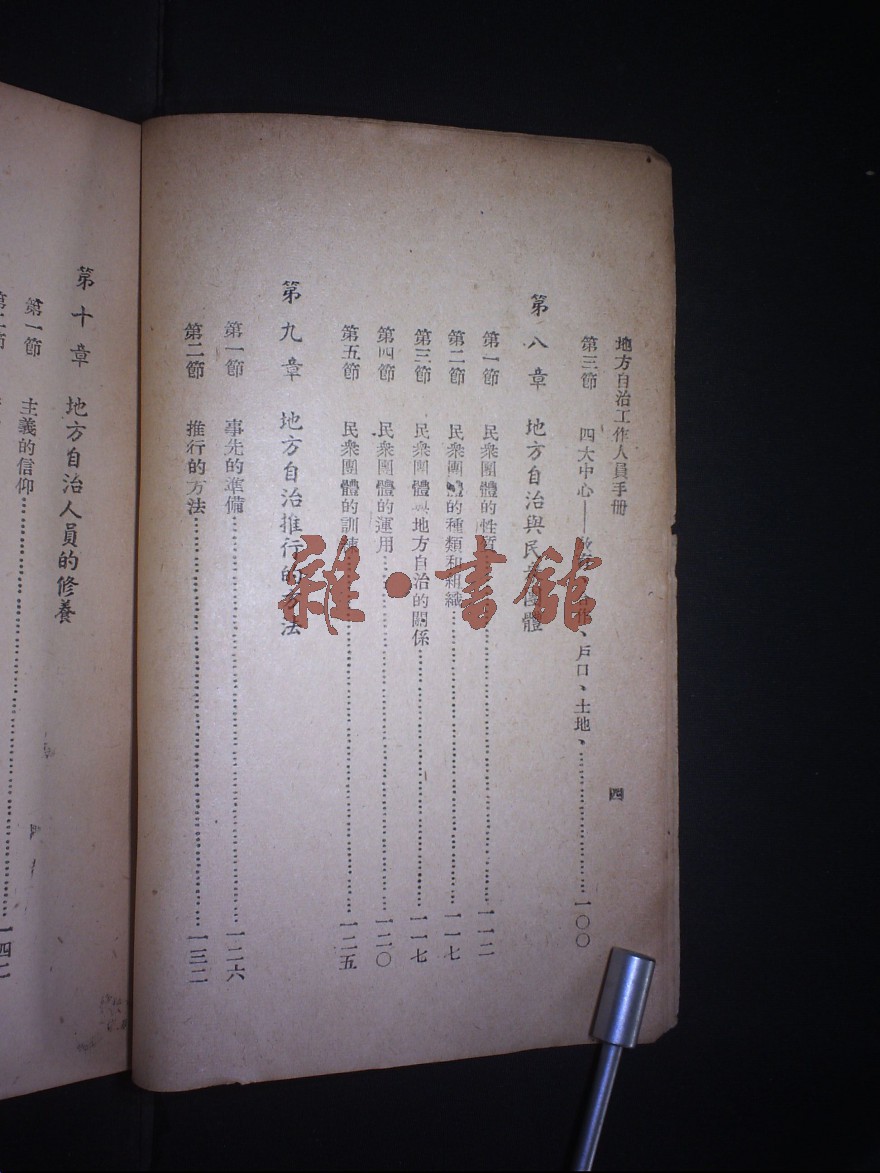 地方自治工作人員手冊 四
第三節 四大中心——、戶口、土地、……一〇〇
第八章 地方自治與民衆團體
第一節 民衆團體的性質……一一二
第二節 民衆團體的種類和組織……一一七
第三節 民衆團體與地方自治的關係……一一七
第四節 民衆團體的運用……一二〇
第五節 民衆團體的訓練……一二五
第九章 地方自治推行的方法
第一節 事先的準備……一二六
第二節 推行的方法……一三二
第十章 地方自治人員的修養
第一節 主義的信仰……一四二
第二節
雜·書館